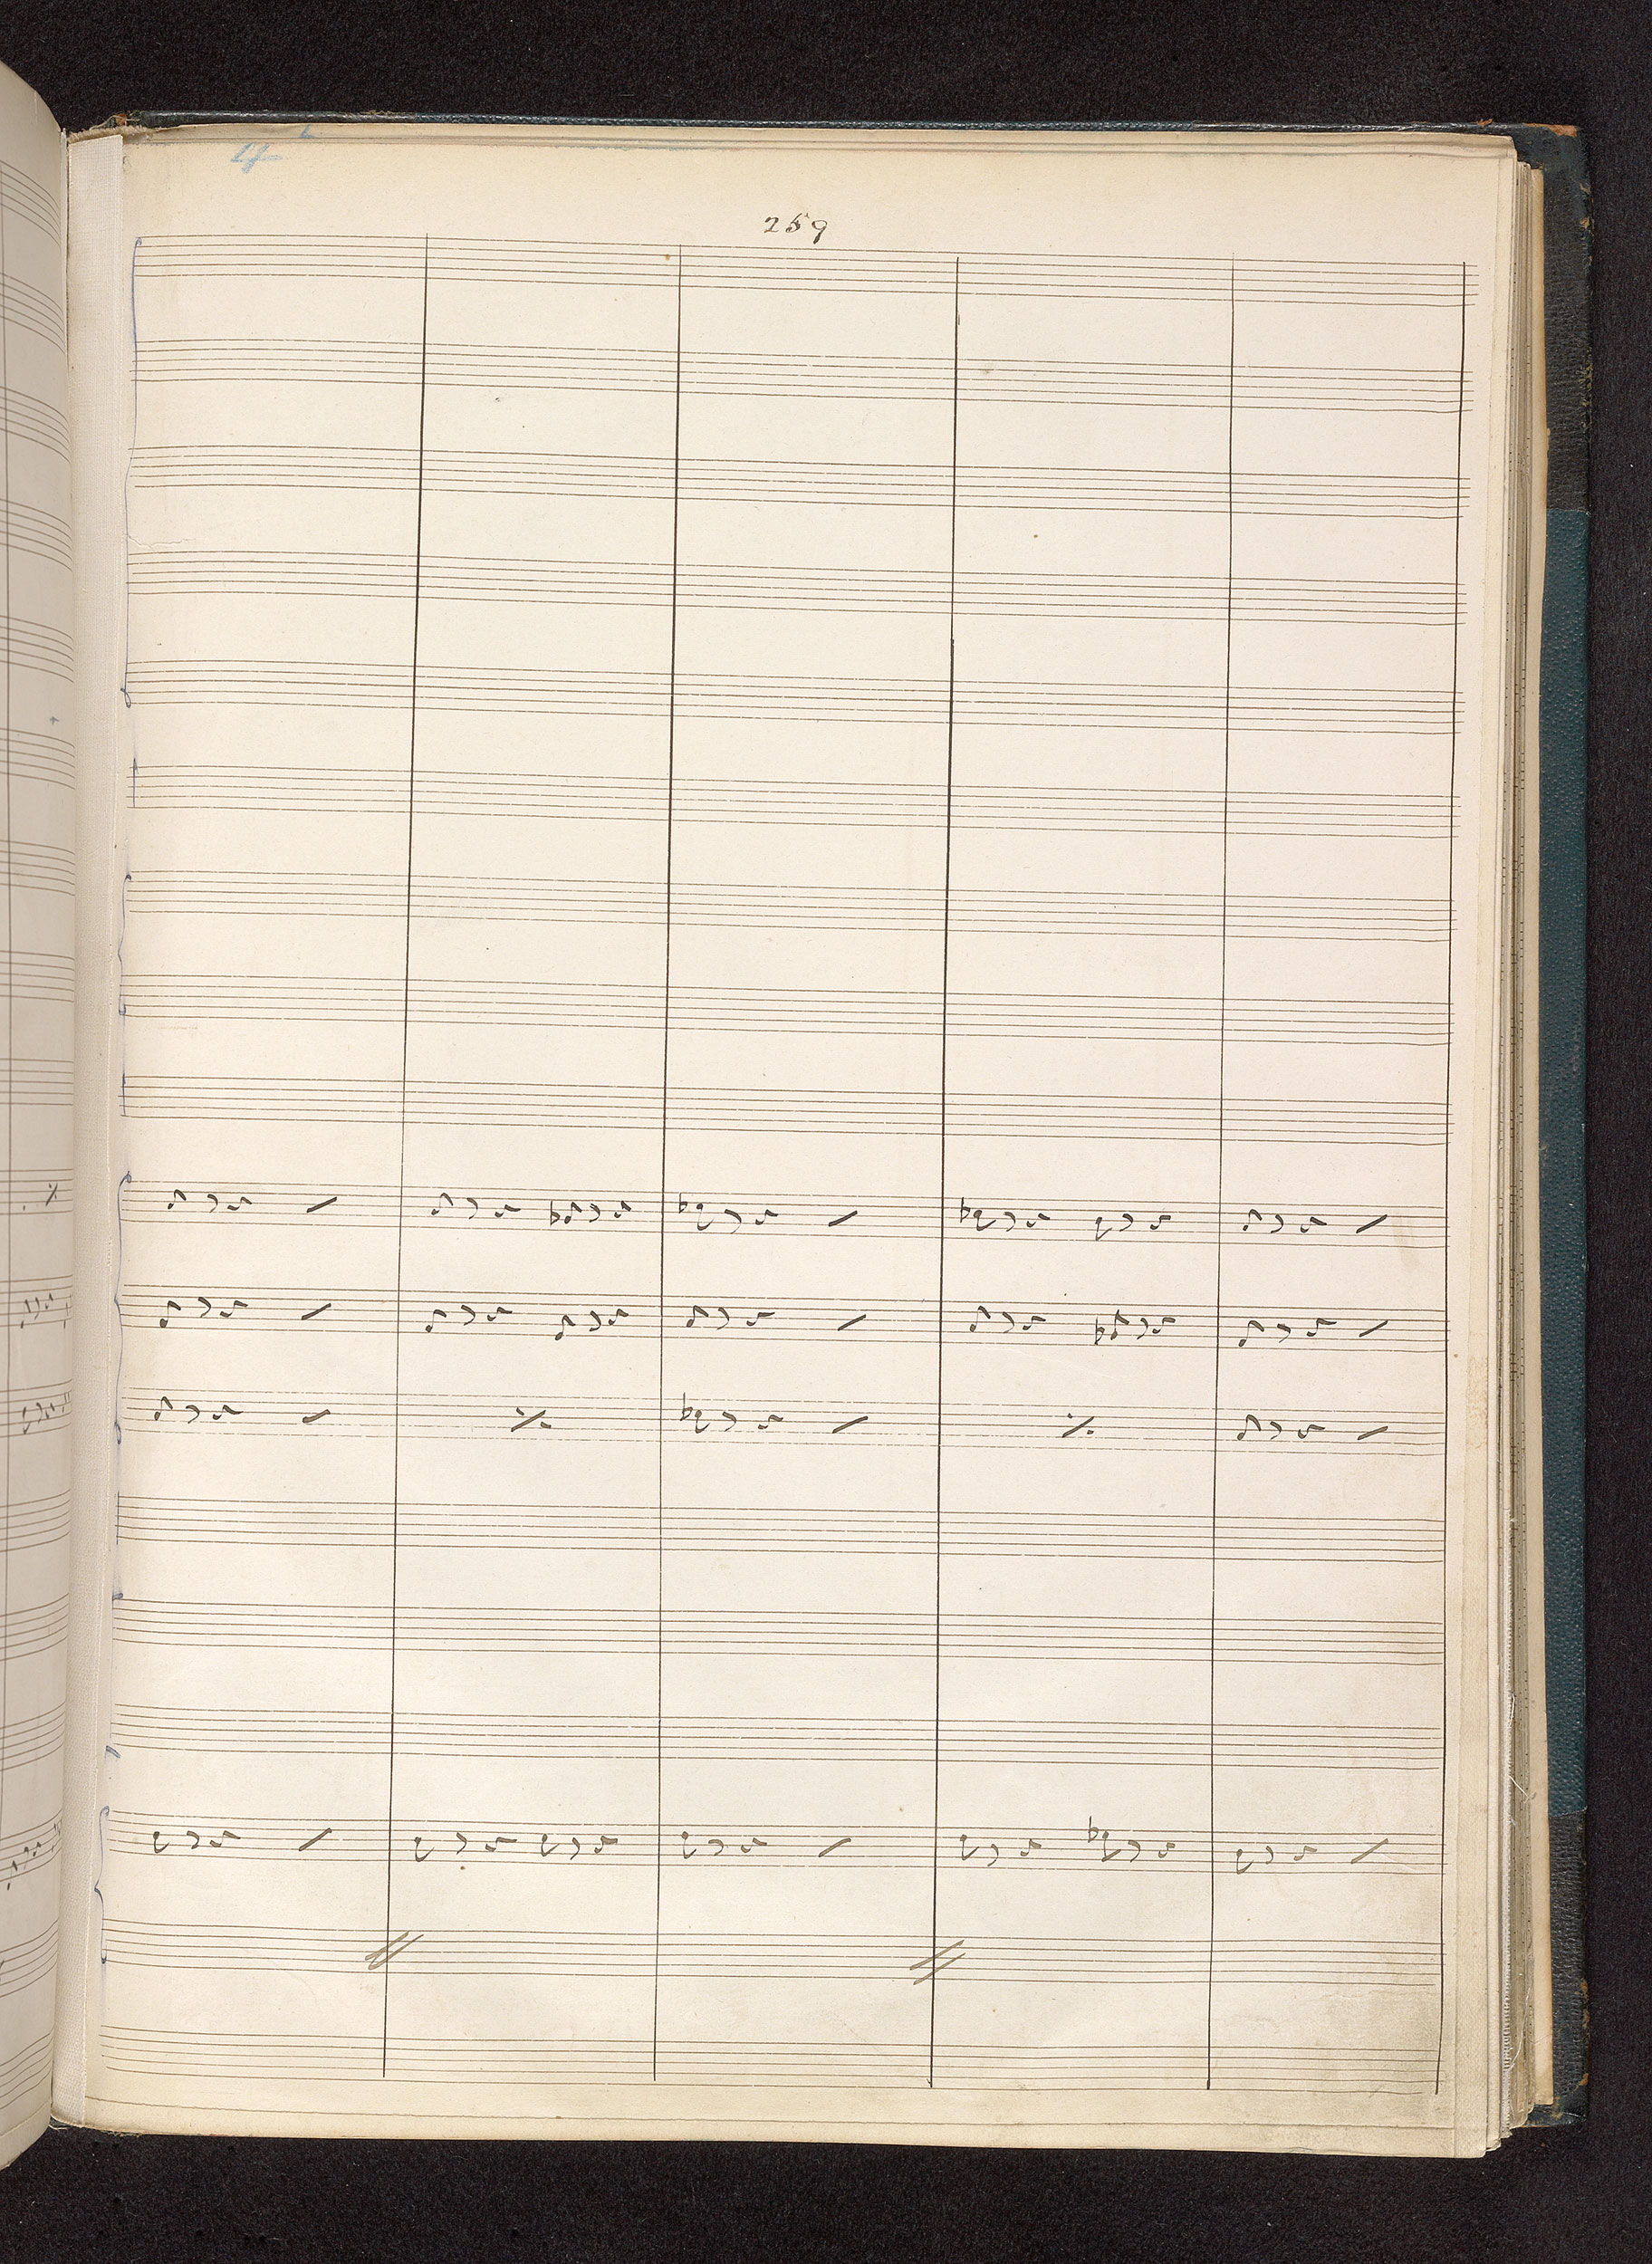 4
259